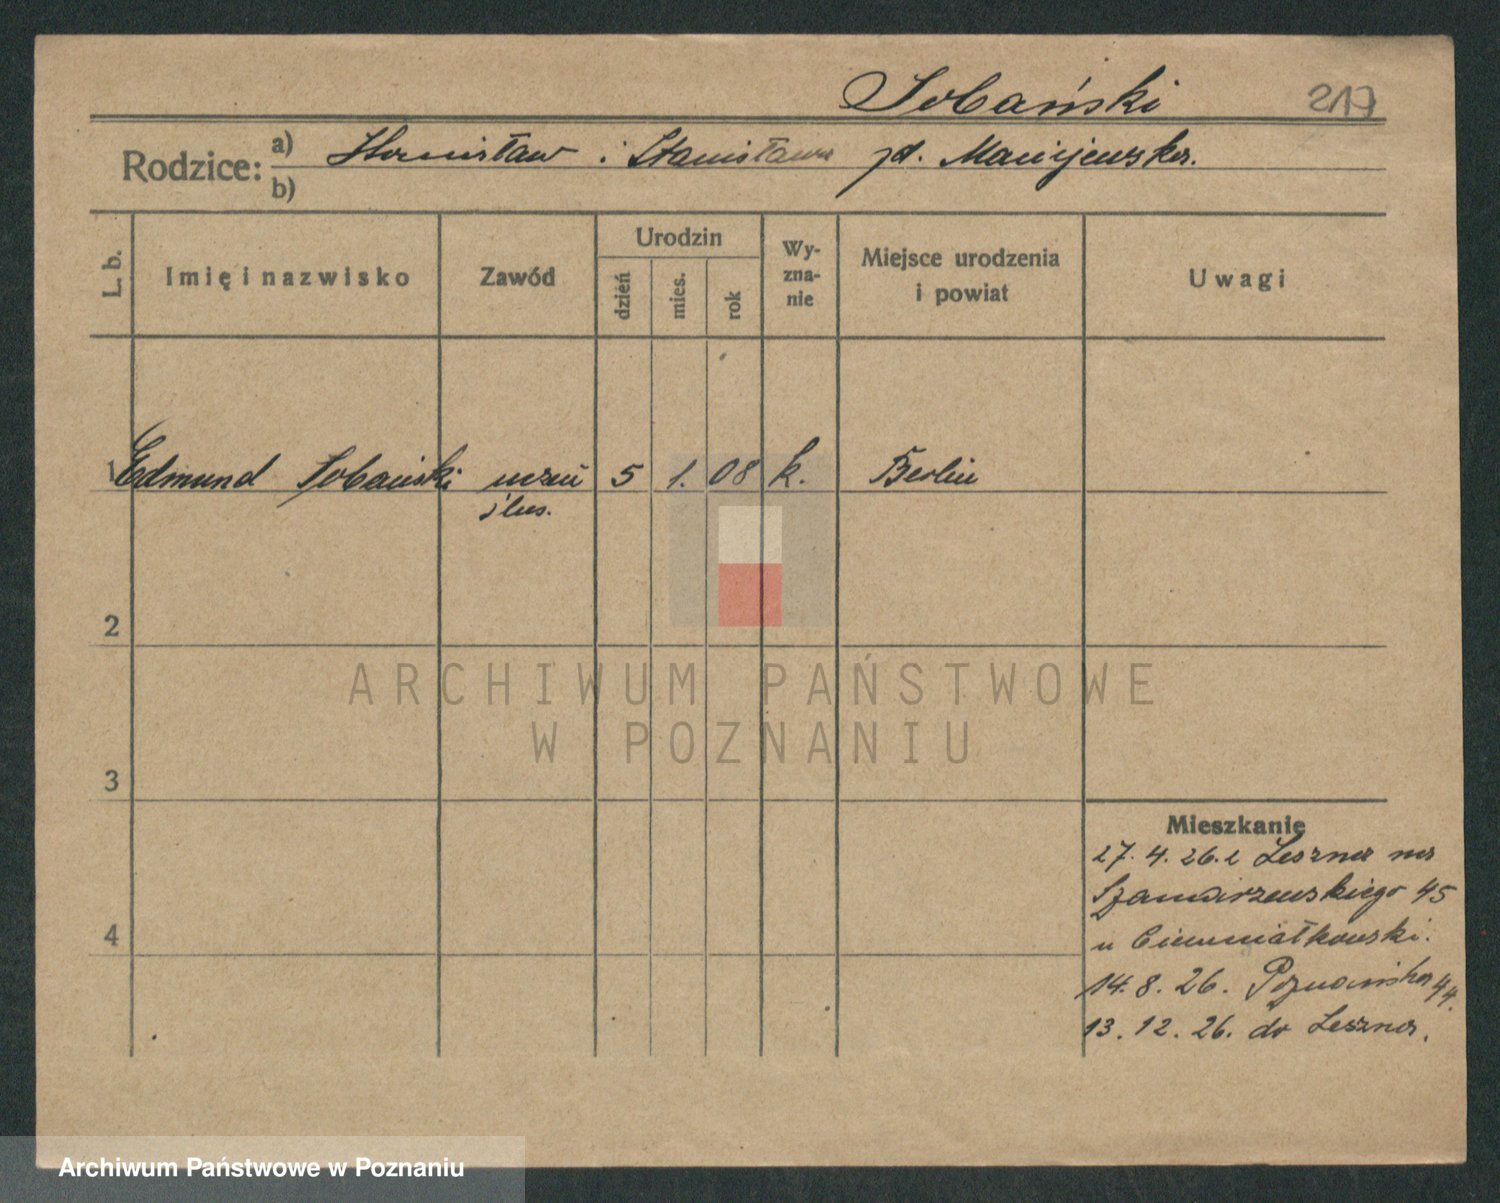 Sobański 217
Rodzice: a) Stanisław i Stanisława zd. Maciejewska.
b)
L. b. Imię i nazwisko Zawód Urodzin dzień mies. rok Wyznanie Miejsce urodzenia i powiat Uwagi
1 Edmund Sobański uczeń 5 1. 08 k. Berlin
ślus.
2
3
4
Mieszkanie
27. 4. 26. z Leszna na
Szamarzewskiego 45
u Ciemniałkowski.
14. 8. 26. Poznańska 44.
13. 12. 26. do Leszna.
ARCHIWUM PAŃSTWOWE
W POZNANIU
Archiwum Państwowe w Poznaniu